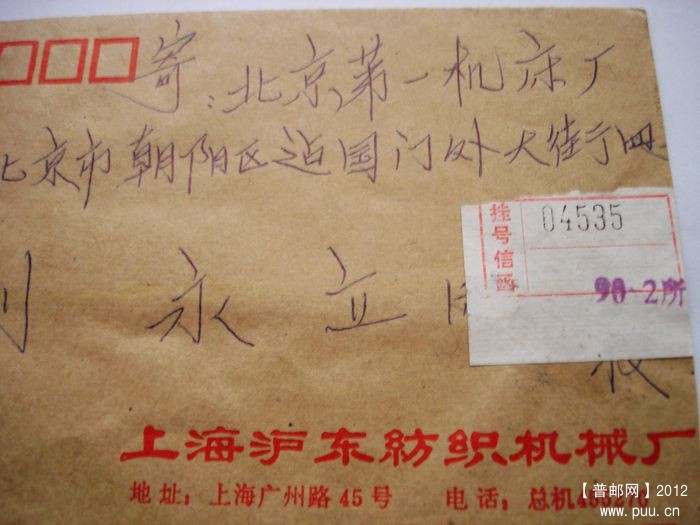 寄：北京第一机床厂
北京市朝阳区建国门外大街
挂号信函
04535
90·2所
刘永立
上海沪东纺织机械厂
地址：上海广州路45号 电话：总机
【普邮网】2012
www.puu.cn